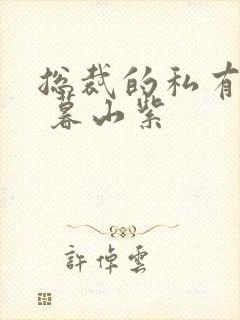 总裁的私有
暮山紫
許倬雲